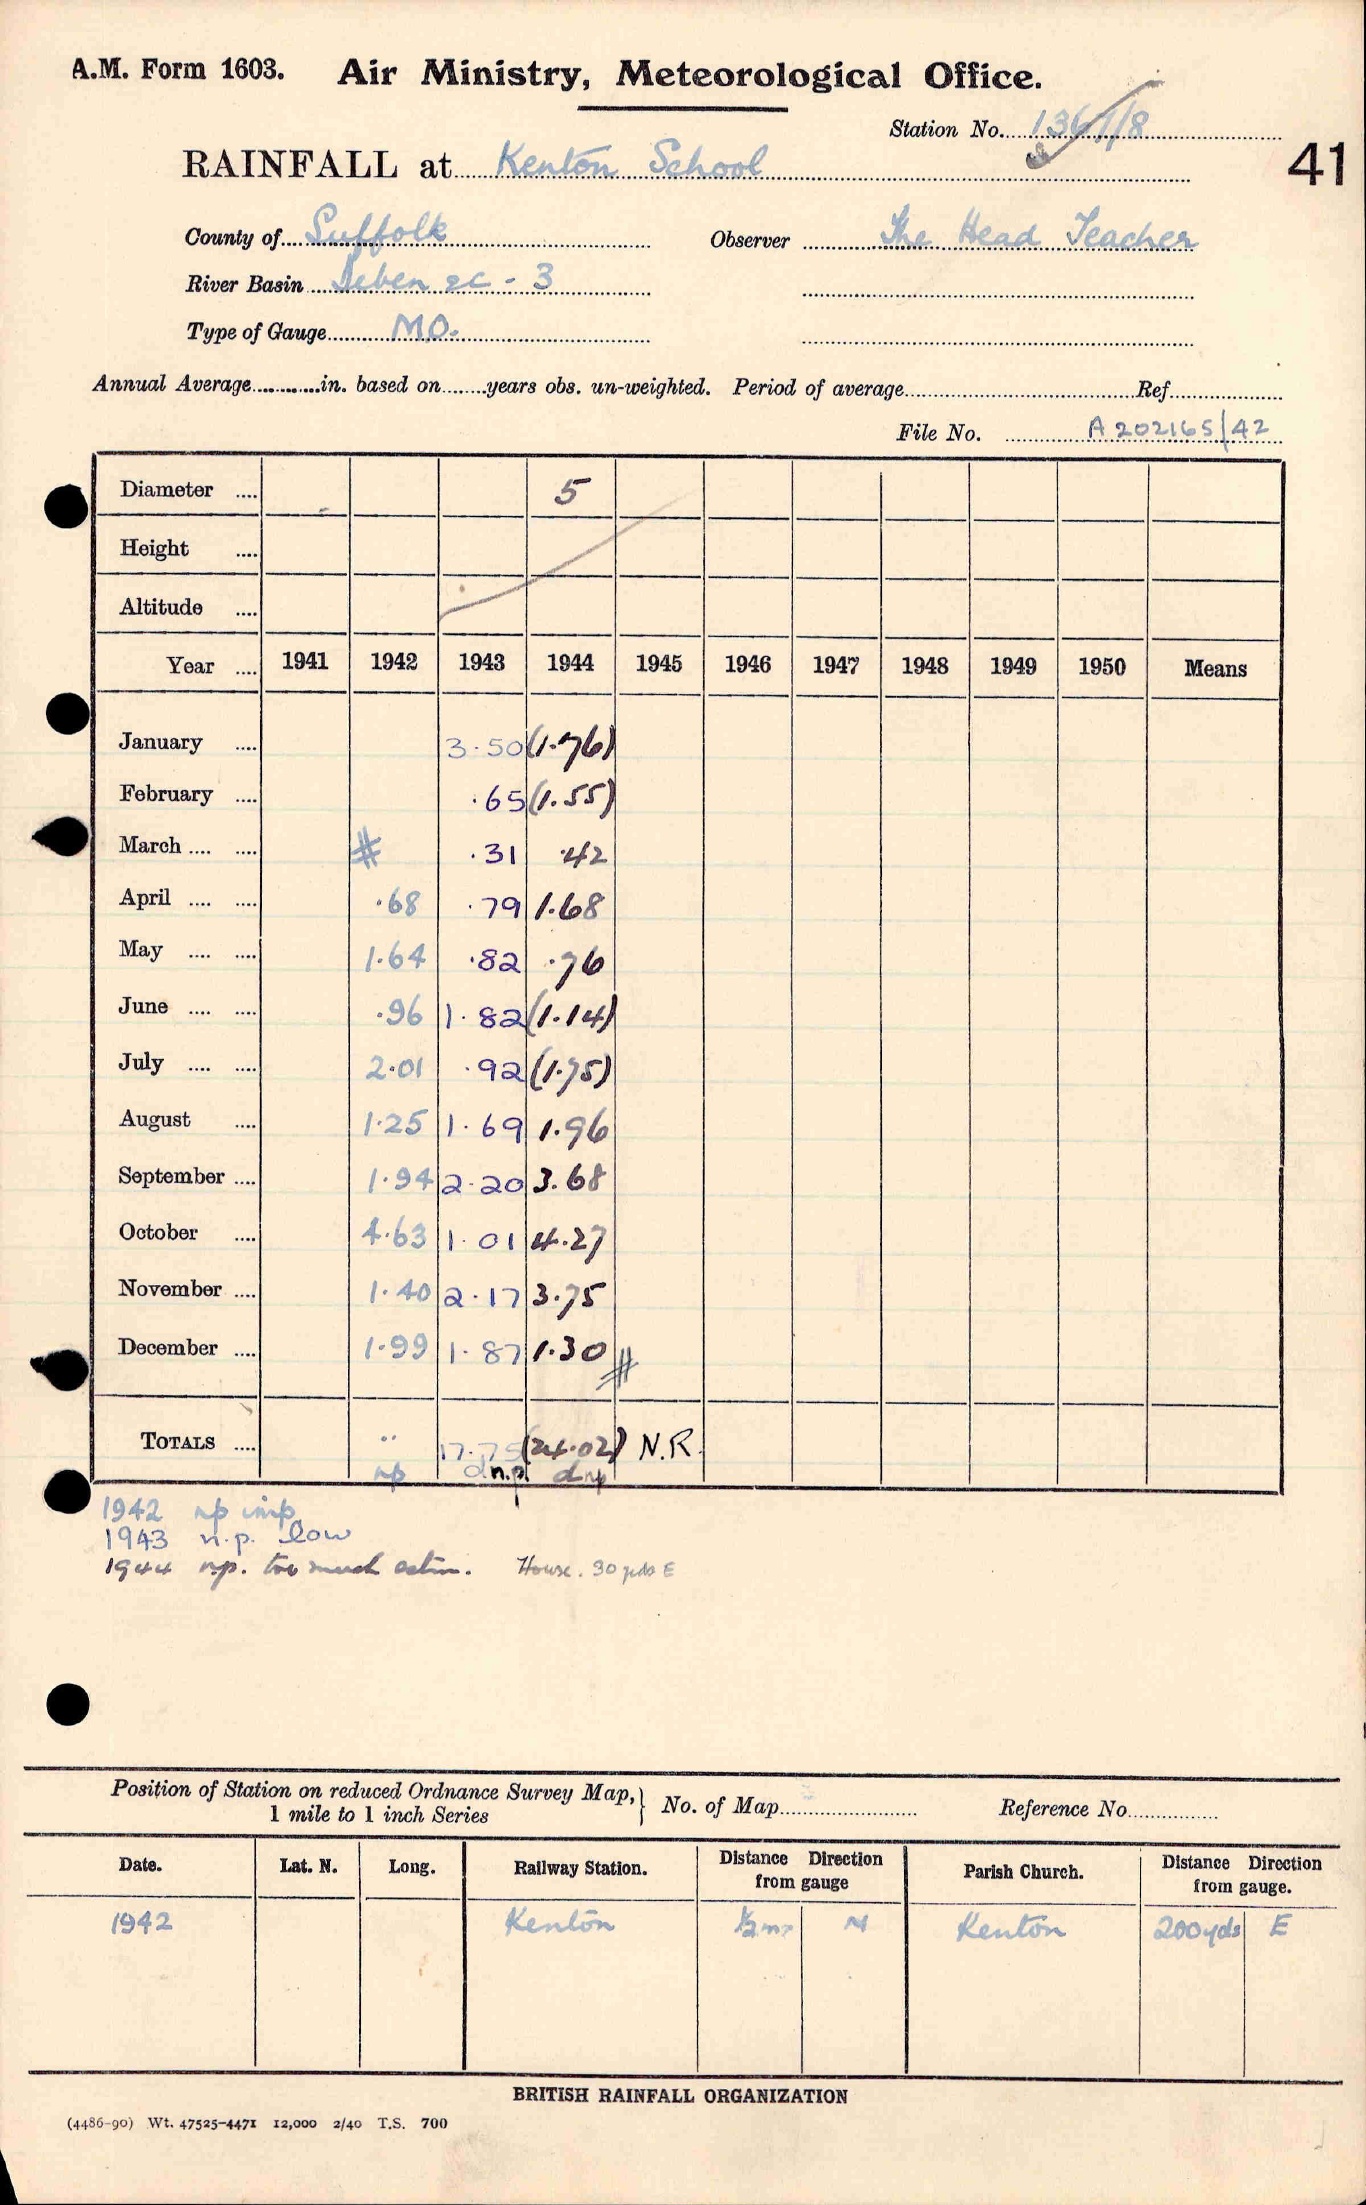 A.M. Form 1603. Air Ministry, Meteorological Office.
Station No. 1361/8
41
RAINFALL at Kenton School
County of Suffolk Observer The Head Teacher
River Basin Deben &c - 3
Type of Gauge M.O.
Annual Average in. based on years obs. un-weighted. Period of average Ref
File No. A 202165/42
Diameter .... 5
Height ....
Altitude ....
Year .... 1941 1942 1943 1944 1945 1946 1947 1948 1949 1950 Means
January .... 3.50 (1.76)
February .... .65 (1.55)
March .... .... # .31 .42
April .... .... .68 .79 1.68
May .... .... 1.64 .82 .76
June .... .... .96 1.82 (1.14)
July .... .... 2.01 .92 (1.75)
August .... 1.25 1.69 1.96
September .... 1.94 2.20 3.68
October .... 4.63 1.01 4.27
November .... 1.40 2.17 3.75
December .... 1.99 1.87 1.30 #
TOTALS .... .. 17.75 (24.02) N.R.
np d n.p. d np
1942 np imp
1943 n.p. low
1944 np. too much estim. House. 30 yds E
Position of Station on reduced Ordnance Survey Map, } No. of Map Reference No.
1 mile to 1 inch Series
Date. Lat. N. Long. Railway Station. Distance Direction from gauge Parish Church. Distance Direction from gauge.
1942 Kenton ½ m N Kenton 200 yds E
BRITISH RAINFALL ORGANIZATION
(4486-90) Wt. 47525-4471 12,000 2/40 T.S. 700